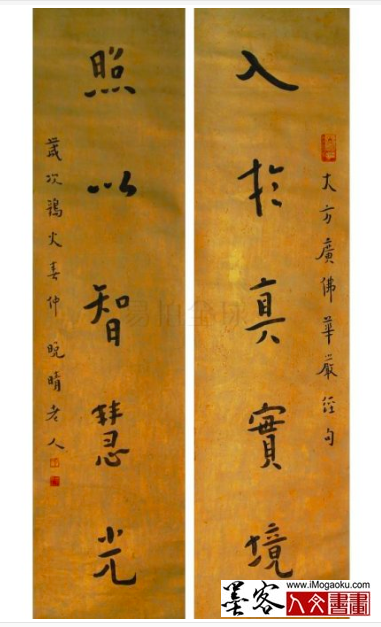 大方廣佛華嚴經句
入於真實境
照以智慧光
歲次鶉火春仲晚晴老人
易拍全球
www.iMogaoku.com
墨客人文書畫